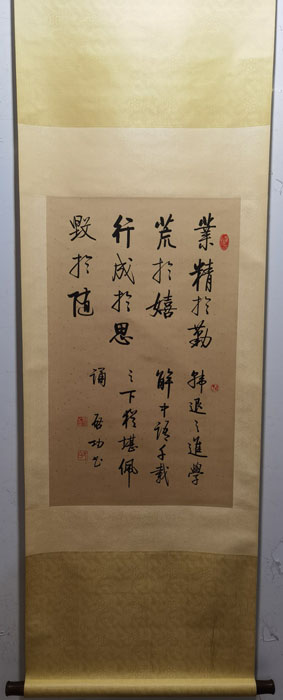 業精於勤
荒於嬉
行成於思
毀於随
韓退之進學
解中語千載
之下猶堪佩
誦 啟功書